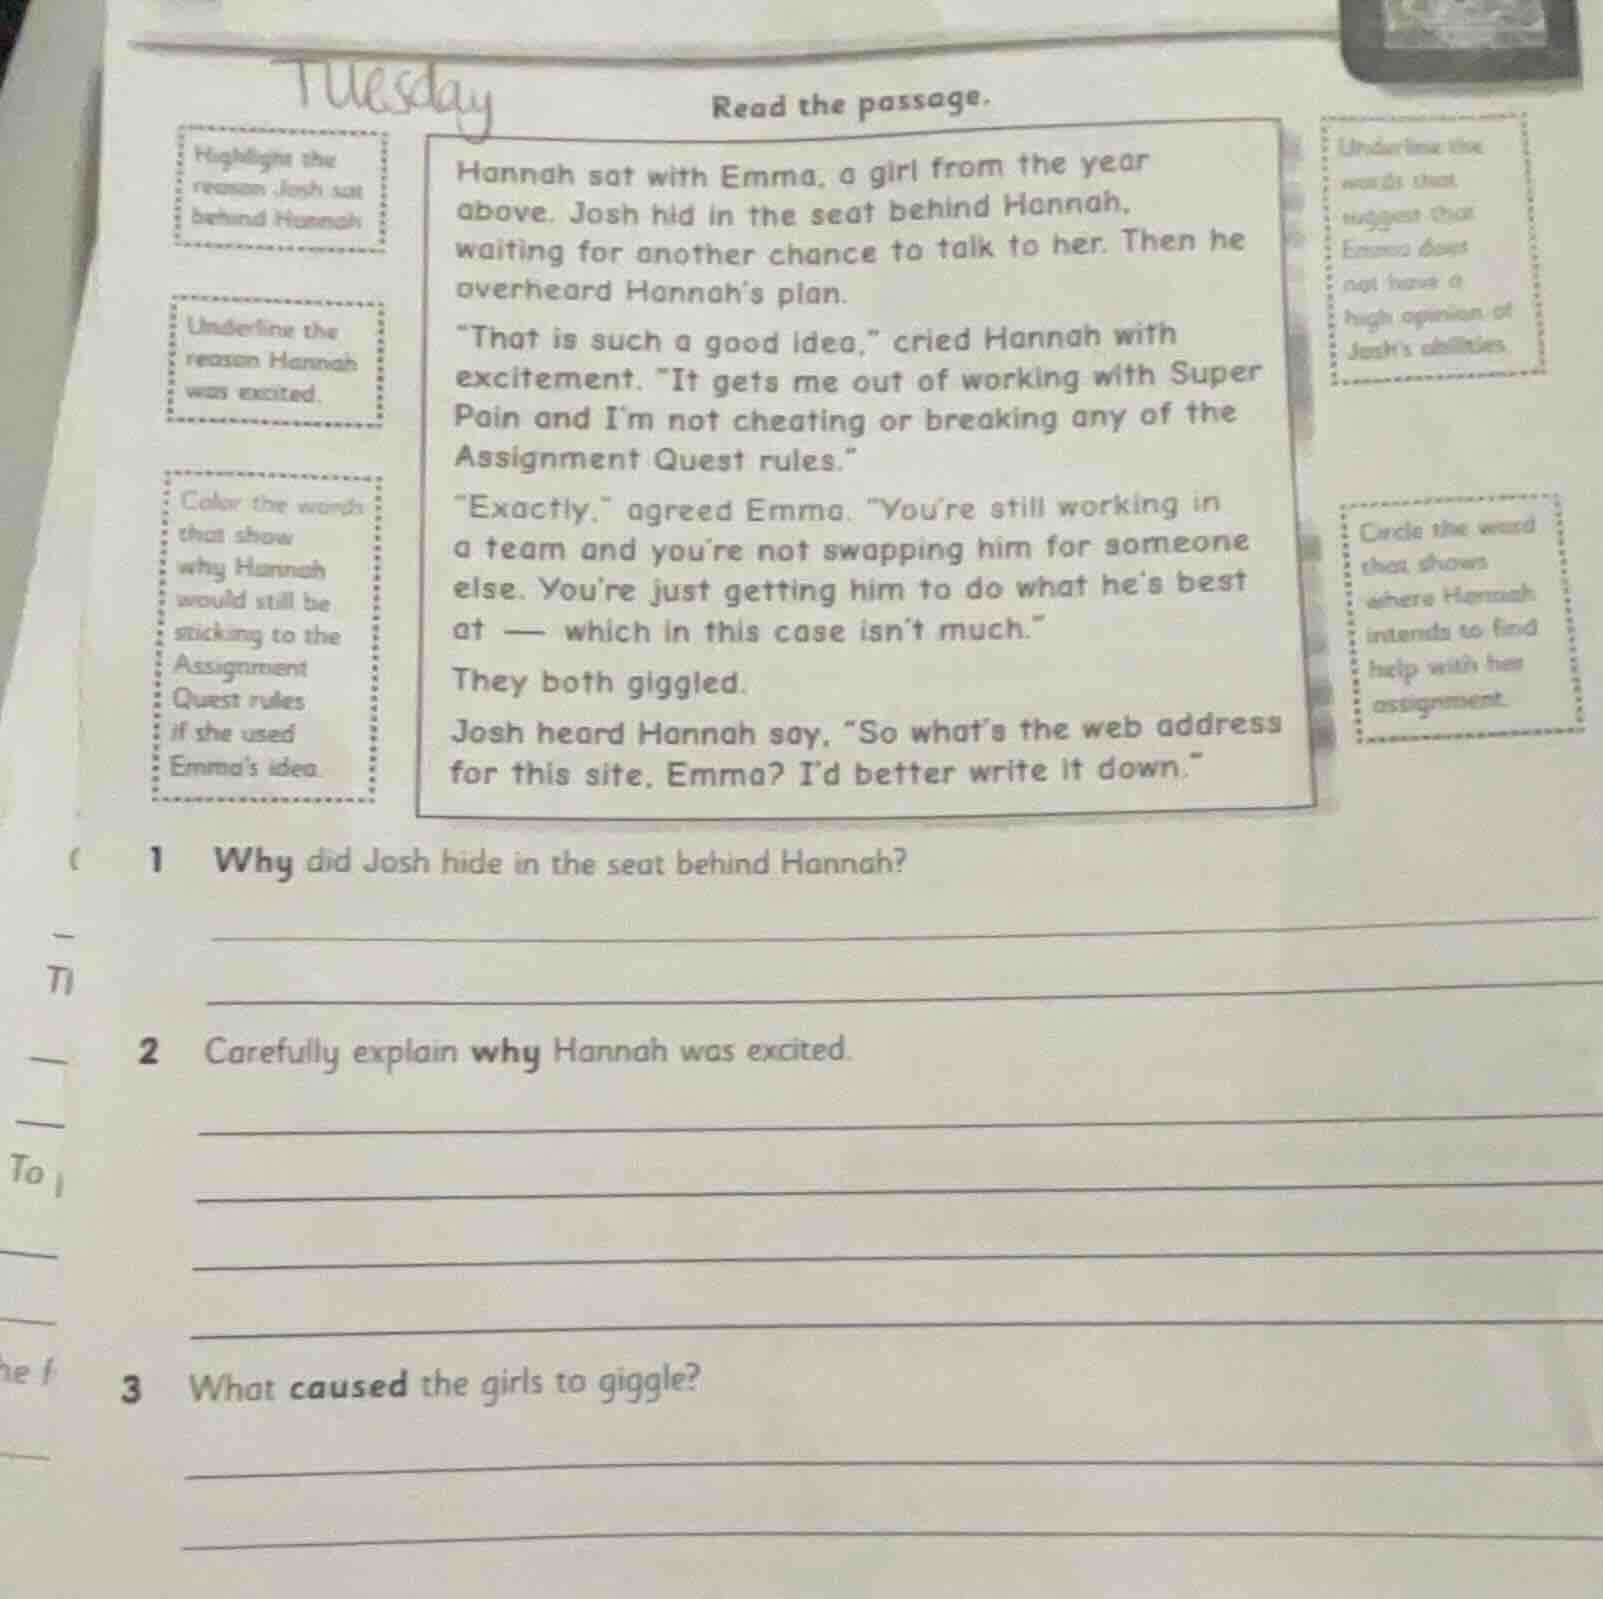 Tuesday
Read the passage.
Highlight the
reason Josh sat
behind Hannah
Underline the
reason Hannah
was excited.
Color the words
that show
why Hannah
would still be
sticking to the
Assignment
Quest rules
if she used
Emma's idea.
Hannah sat with Emma, a girl from the year
above. Josh hid in the seat behind Hannah,
waiting for another chance to talk to her. Then he
overheard Hannah's plan.
"That is such a good idea," cried Hannah with
excitement. "It gets me out of working with Super
Pain and I'm not cheating or breaking any of the
Assignment Quest rules."
"Exactly," agreed Emma. "You're still working in
a team and you're not swapping him for someone
else. You're just getting him to do what he's best
at — which in this case isn't much."
They both giggled.
Josh heard Hannah say, "So what's the web address
for this site, Emma? I'd better write it down."
Underline the
words that
suggest that
Emma does
not have a
high opinion of
Josh's abilities
Circle the word
that shows
where Hannah
intends to find
help with her
assignment.
1 Why did Josh hide in the seat behind Hannah?
2 Carefully explain why Hannah was excited.
3 What caused the girls to giggle?
To